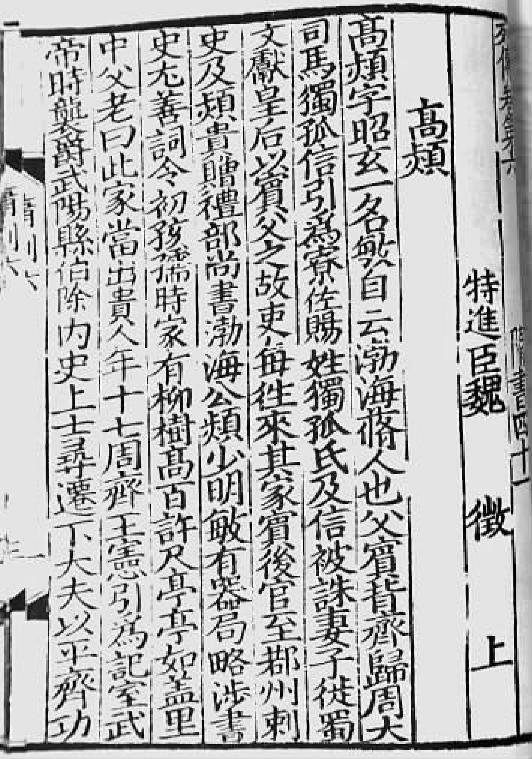 列傳第六
隋書四十一
特進臣魏徵上
高熲
高熲字昭玄一名敏自云渤海蓨人也父賔背齊歸周大
司馬獨孤信引爲寮佐賜姓獨孤氏及信被誅妻子徙蜀
文獻皇后以賔父之故吏每往來其家賔後官至鄀州刺
史及熲貴贈禮部尚書渤海公熲少明敏有器局略涉書
史尤善詞令初孩孺時家有柳樹高百許尺亭亭如盖里
中父老曰此家當出貴人年十七周齊王憲引爲記室武
帝時襲爵武陽縣伯除内史上士尋遷下大夫以平齊功